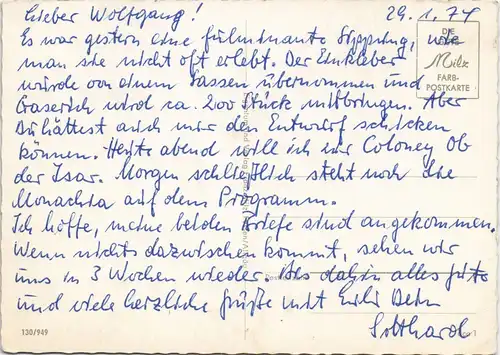 Lieber Wolfgang! 29.1.74
Es war gestern eine fulminante Sippung, wie
man sie nicht oft erlebt. Der Einkleber
würde von einem Sassen übernommen und
Gaserich wird ca. 200 Stück mitbringen. Aber
Du hättest auch mir den Entwurf schicken
können. Heute abend will ich zur Coloney Ob
der Isar. Morgen schließlich steht noch die
Monachia auf dem Programm.
Ich hoffe, meine beiden Briefe sind angekommen.
Wenn nichts dazwischen kommt, sehen wir
uns in 3 Wochen wieder. Bis dahin alles Gute
und viele herzliche Grüße mit Lulu Dein
Gotthard
DIE
Milz
FARB-
POSTKARTE
130/949